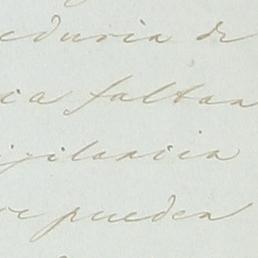 eduria de
ica faltan
vigilancia
se pueden